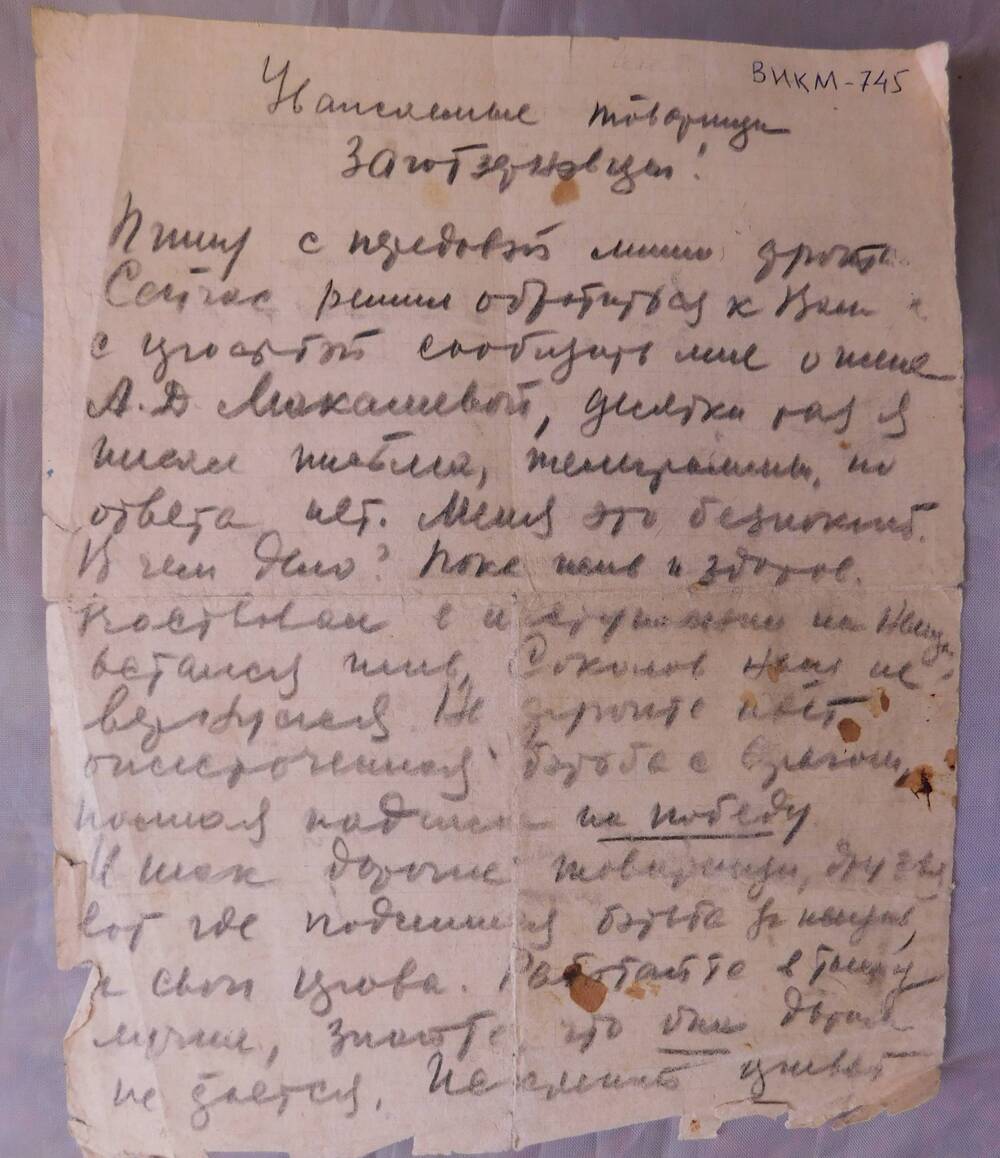 ВИКМ-745
Уважаемые товарищи
Заготзерновцы!
Пишу с передовой линии фронта.
Сейчас решил обратиться к Вам
с просьбой сообщить мне о жене
А.Д Мокашевой, десятки раз я
писал письма, телеграммы, но
ответа нет. Меня это безпокоит.
В чем дело? Пока жив и здоров.
в наступлении на
остался жив, Соколов нет не
вернулся. На фронте идёт
ожесточенная борьба с врагом,
полная надежда на победу
И так дорогие товарищи, друзья
вот где подлинная борьба за жизнь,
и свои права. Работайте в тылу
лучше, знайте, что она даром
не дается. привет